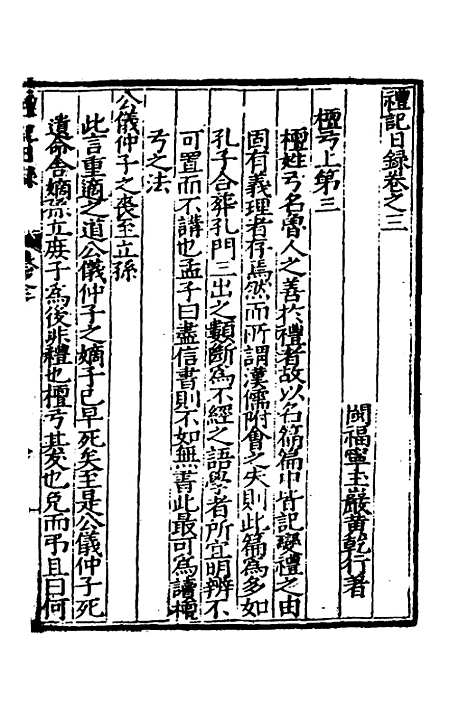 禮記日録卷之三
閩福寧玉巖黄乾行著
檀弓上第三
檀姓弓名魯人之善於禮者故以名篇篇中皆記變禮之由
固有義理者存焉然而所謂漢儒附會之失則此篇爲多如
孔子合葬孔門三出之類斷爲不經之語學者所宜明辨不
可置而不講也孟子曰盡信書則不如無書此最可爲讀檀
弓之法
公儀仲子之喪至立孫
此言重適之道公儀仲子之嫡子已早死矣至是公儀仲子死
遺命舍嫡孫立庶子爲後非禮也檀弓其友也免而弔且曰何
禮記日録